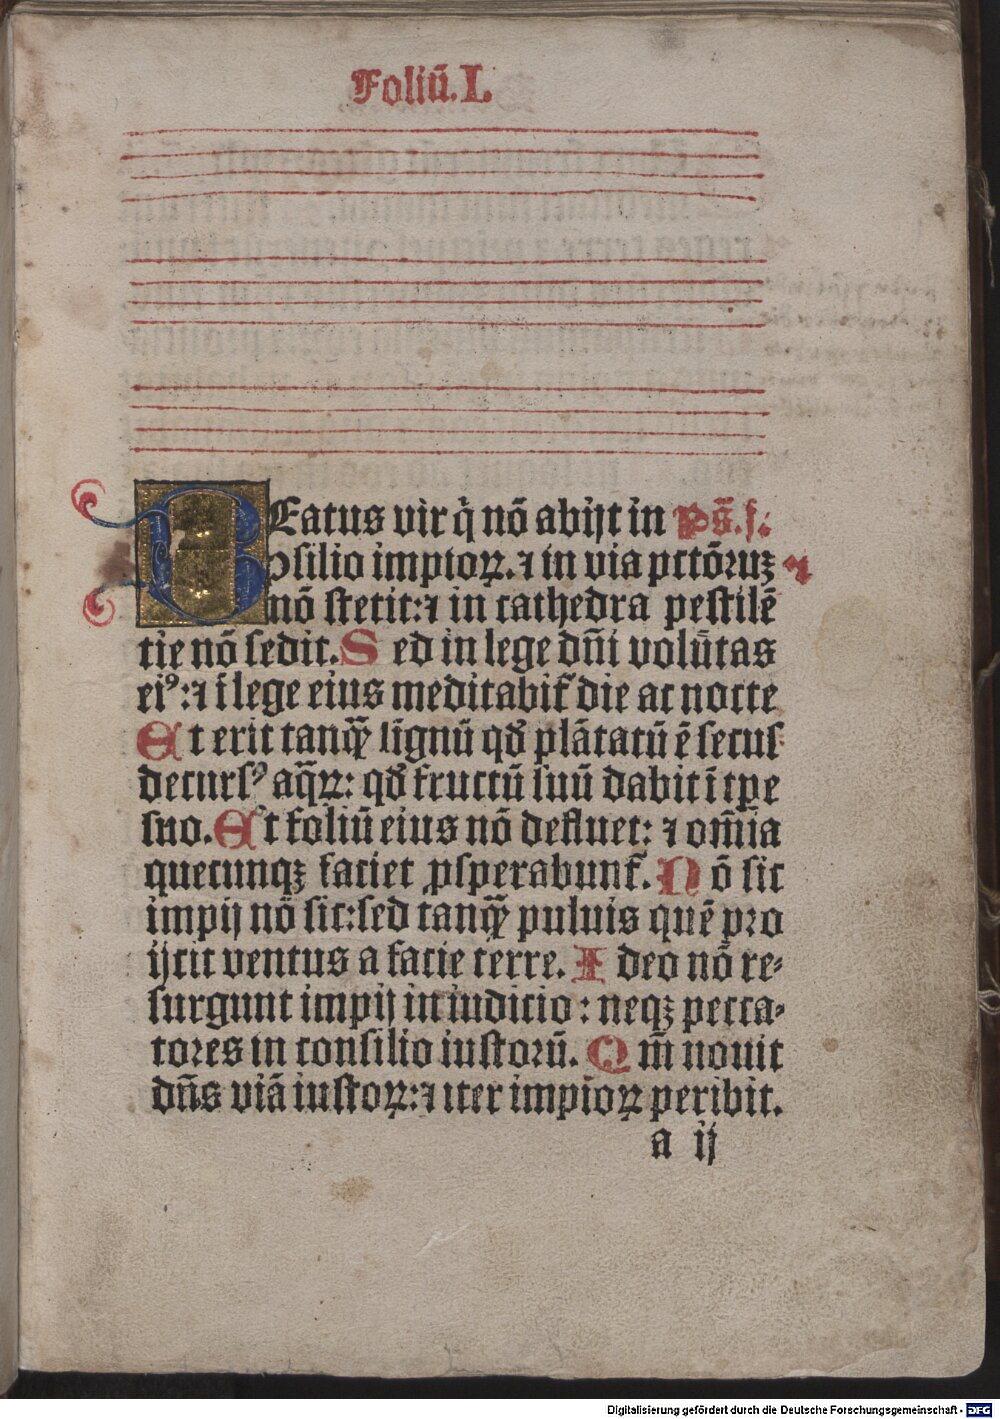 Foliū. I.
BEatus vir q̇ nō abijt in ps̄. j.
ↄsilio impioꝝ. ⁊ in via pctōruꝫ
nō stetit: ⁊ in cathedra pestilē
tie nō sedit. Sed in lege dn̄i volūtas
eiꝰ: ⁊ ī lege eius meditabit᷑ die ac nocte
Et erit tanqͣꝫ lignū qd̓ plātatū ē secus
decursꝰ aqͣꝝ: qd̓ fructū suū dabit ī tꝑe
suo. Et foliū eius nō defluet: ⁊ om̄ia
quecunqꝫ faciet ꝓsperabunt᷑. Nō sic
impij nō sic: sed tanqͣꝫ puluis quē pro
ijcit ventus a facie terre. Ideo nō re⸗
surgunt impij in iudicio: neqꝫ pecca⸗
tores in consilio iustorū. Qm̄ nouit
dn̄s viā iustoꝝ: ⁊ iter impioꝝ peribit.
a ij
Digitalisierung gefördert durch die Deutsche Forschungsgemeinschaft - DFG